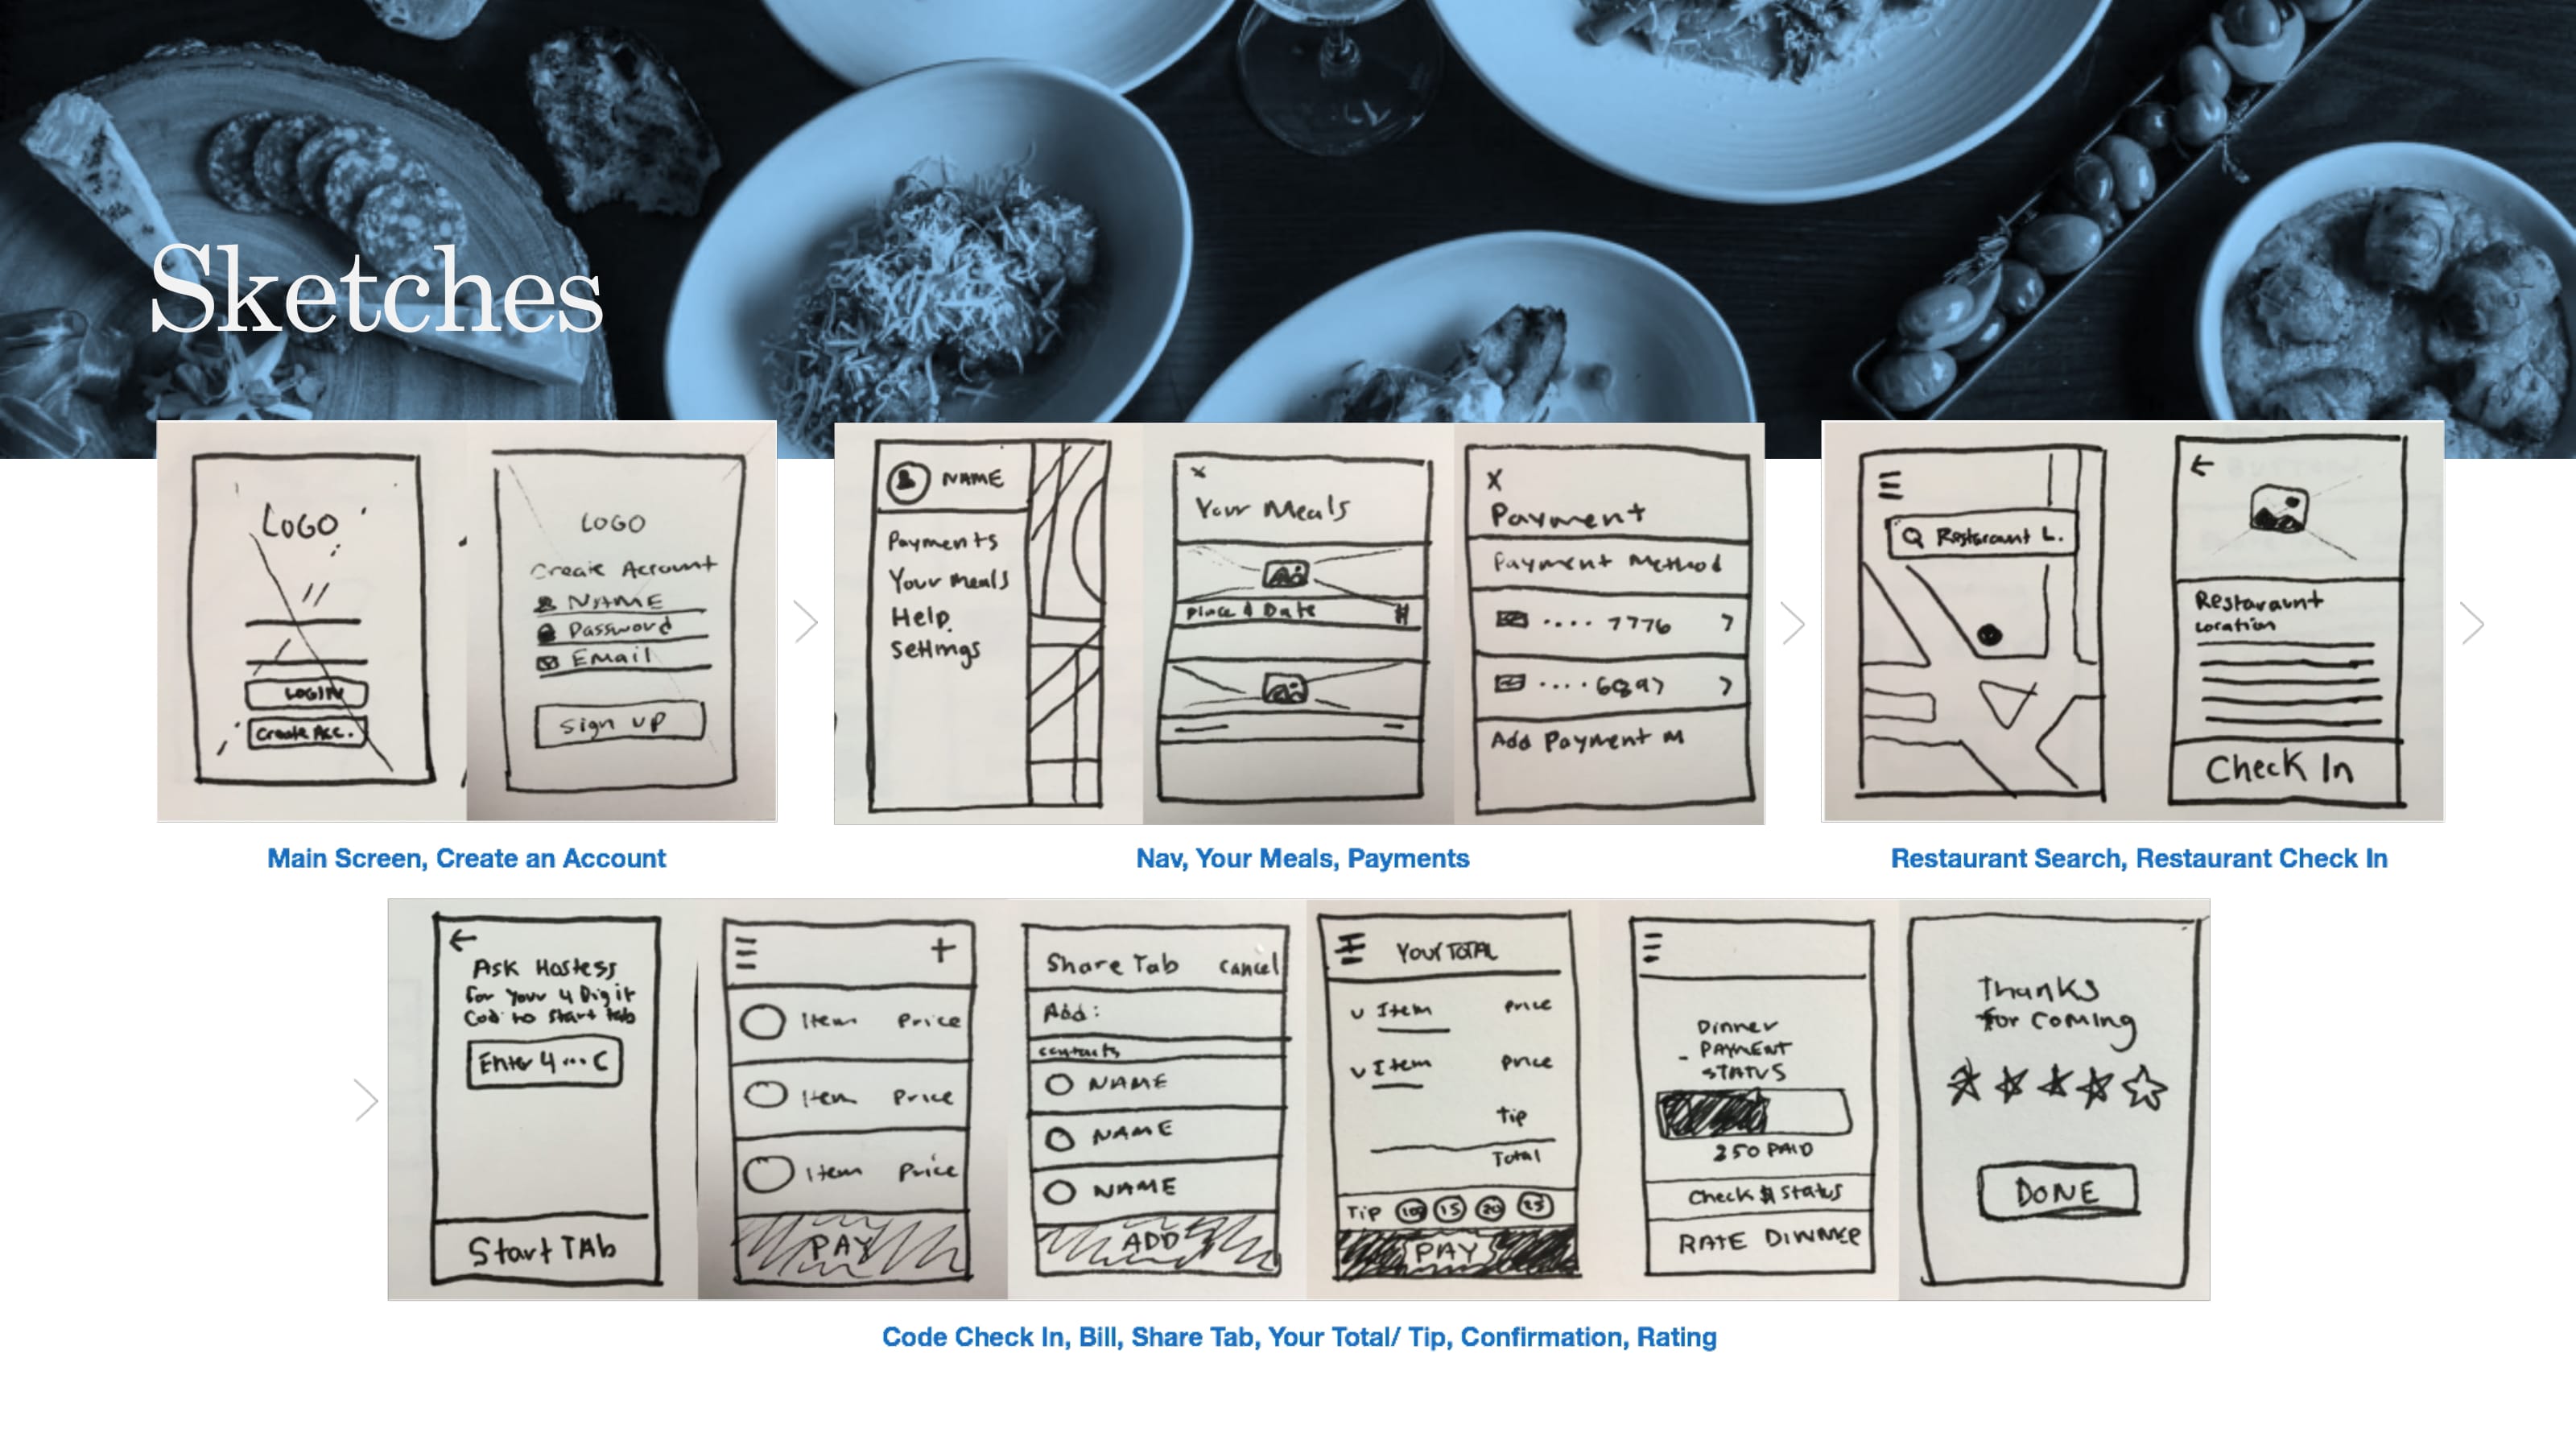 Sketches
LOGO
LOGIN
Create Acc.
LOGO
Create Account
NAME
Password
Email
Sign up
Main Screen, Create an Account
NAME
Payments
Your meals
Help
Settings
X
Your Meals
Place & Date
#
X
Payment
Payment Method
.... 7776 >
.... 6897 >
Add Payment M
Nav, Your Meals, Payments
Restaurant L.
Restaraunt
Location
Check In
Restaurant Search, Restaurant Check In
Ask Hostess
for your 4 Digit
Cod to start tab
Enter 4 ... C
Start TAb
+
Item Price
Item Price
Item Price
PAY
Share Tab Cancel
Add:
contacts
NAME
NAME
NAME
ADD
Your TOTAL
Item Price
Item Price
Tip
Total
Tip 15 20 25
PAY
Dinner
- PAYMENT
STATUS
250 PAID
Check $ Status
RATE DINNER
Thanks
for coming
DONE
Code Check In, Bill, Share Tab, Your Total/ Tip, Confirmation, Rating